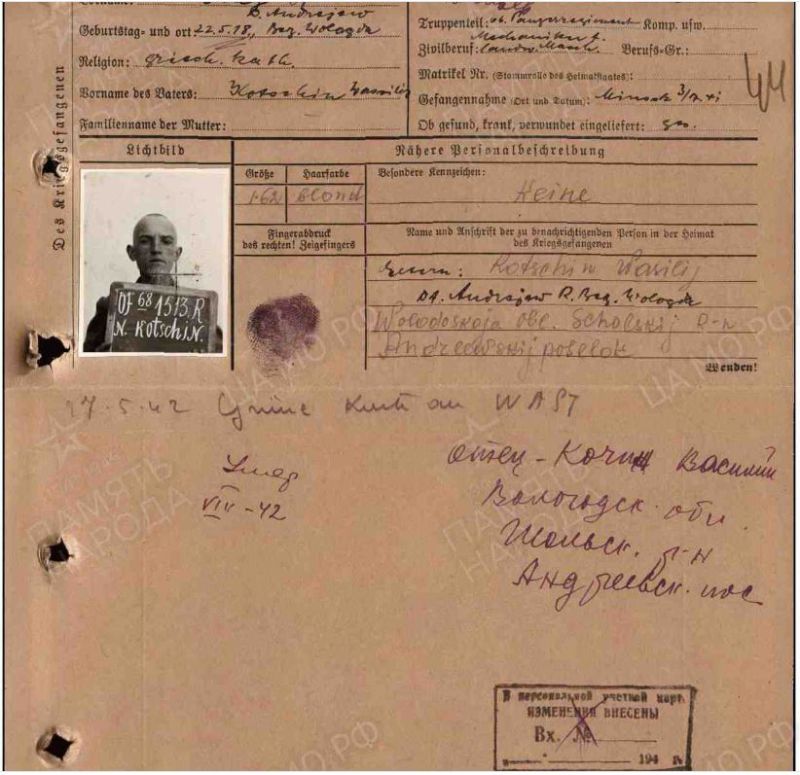 D. Andrejew
Geburtstag= und ort: 22.5.18, Bez. Wologda
Religion: griech. kath.
Vorname des Vaters: Kotschin Wassilij
Familienname der Mutter:
Truppenteil: Panzerregiment Komp. usw.
Mechaniker f.
Zivilberuf: landw. Masch. Berufs=Gr.:
Matrikel Nr. (Stammrolle des Heimatstaates):
Gefangennahme (Ort und Datum): Minsk 3/7 41
Ob gesund, krank, verwundet eingeliefert: ges.
44
Des Kriegsgefangenen
Lichtbild
OF 68 1513. R
N. KOTSCHIN.
Nähere Personalbeschreibung
Größe Haarfarbe Besondere Kennzeichen:
1.62 blond Keine
Fingerabdruck
des rechten! Zeigefingers
Name und Anschrift der zu benachrichtigenden Person in der Heimat
des Kriegsgefangenen
Kotschin Wasilij
D. Andrejew R. Bez. Wologda
Wologodskaja obl. Scholskij R-n
Andreewskij poselok
Wenden!
27.5.42 Grüne Karte an WAST
Умер
VIII-42
Отец - Кочин Василий
Вологодск. обл.
Шольск. р-н
Андреевск. пос
В персональной учетной карт.
ИЗМЕНЕНИЯ ВНЕСЕНЫ
Вх. №
194 г.
ПАМЯТЬ НАРОДА
ЦАМО.РФ